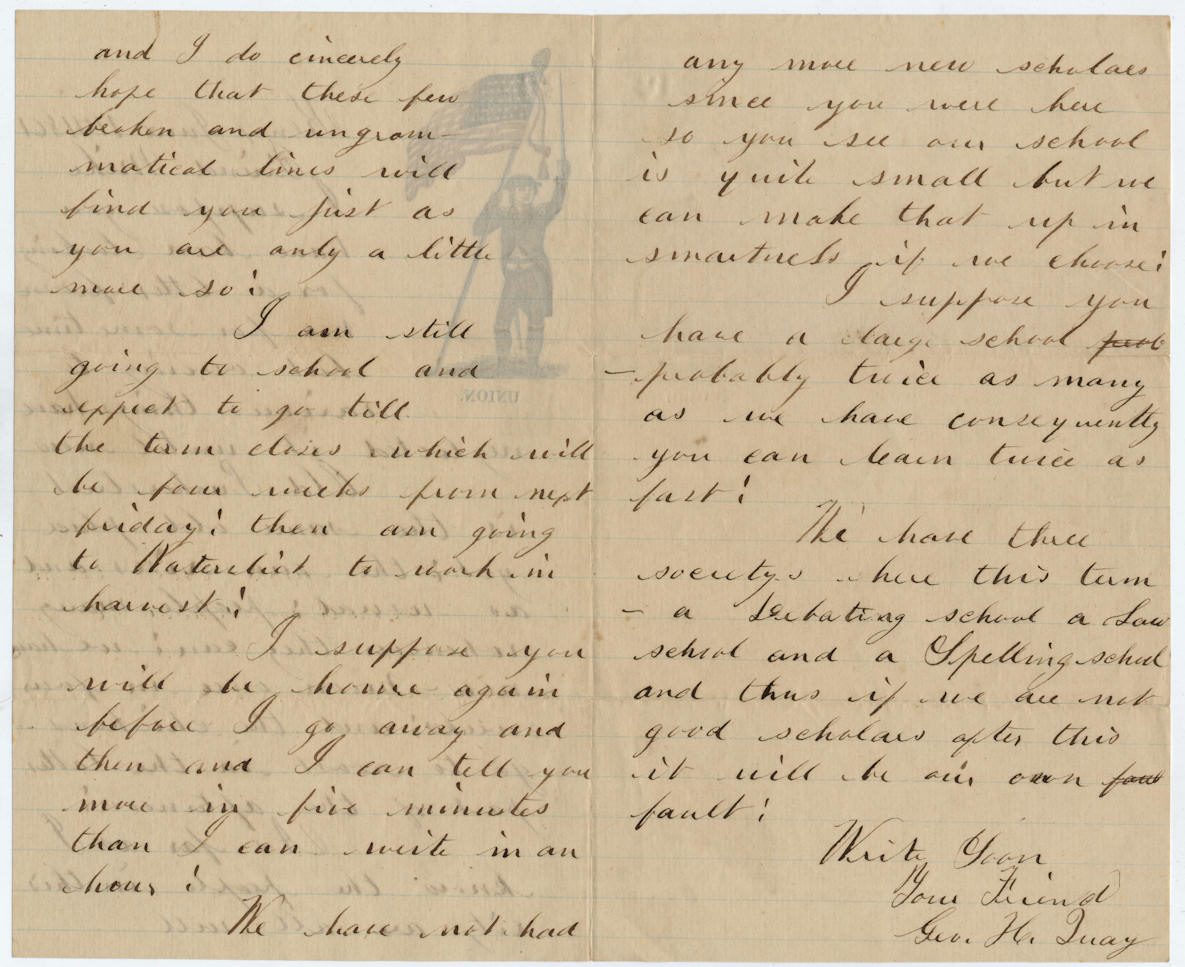 and I do cincerely
hope that these few
broken and ungram-
matical lines will
find you just as
you are only a little
more so!
I am still
going to school and
expect to go till
the term closes which will
be four weeks from next
friday! then am going
to Waterlick to work in
harvest!
I suppose you
will be home again
before I go away and
then and I can tell you
more in five minutes
than I can write in an
hour!
We have not had
UNION.
any more new scholars
since you were here
so you see our school
is quite small but we
can make that up in
smartness if we choose!
I suppose you
have a large school prob
- probably twice as many
as we have consequently
you can learn twice as
fast!
We have three
societys here this term
- a Debating school a Law
school and a Spelling school
and thus if we are not
good scholars after this
it will be our own faut
fault!
Write Soon
Your Friend
Geo. H. Quay